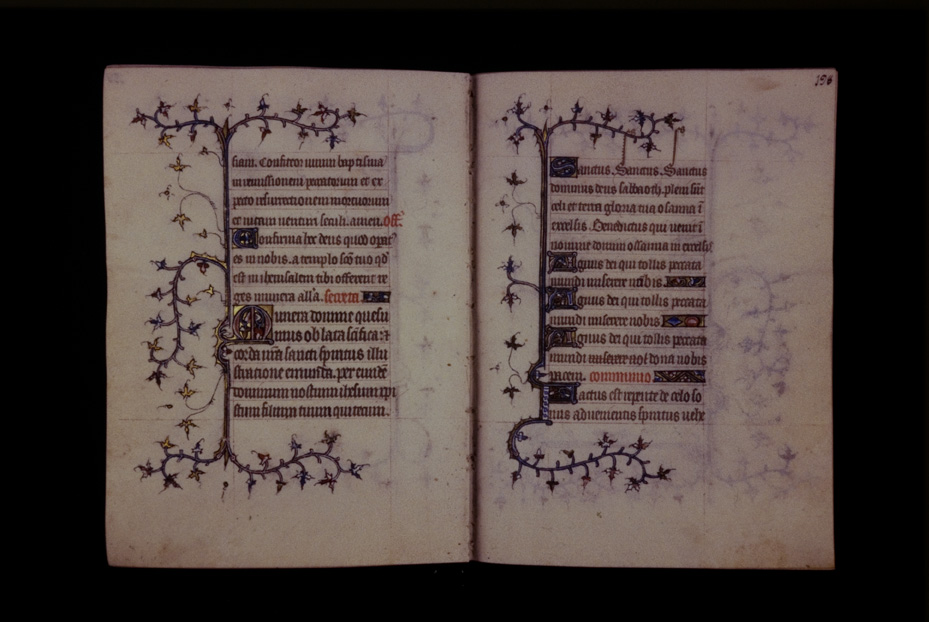 siam. Confiteor unum baptisma
in remissionem peccatorum et ex
pecto resurrectionem mortuorum
et uitam uenturi seculi. amen. off.
Confirma hoc deus quod operat
es in nobis. a templo scō tuo qd̄
est in iherusalem tibi offerent re
ges munera all'a. secreta
Munera domine quesu
mus oblata sc̄ifica: ⁊
corda nr̄a sancti spiritus illu
stratione emunda. per eundē
dominum nostrum ihesum xp̄i
stum filium tuum qui tecum.
156
Sanctus. Sanctus. Sanctus
dominus deus sabaoth. pleni sūt
celi et terra gloria tua osanna ī
excelsis. Benedictus qui uenit ī
nomine domini osanna in excelsis
Agnus dei qui tollis peccata
mundi miserere nobis
Agnus dei qui tollis peccata
mundi miserere nobis
Agnus dei qui tollis peccata
mundi dona nobis
pacem. communio
Factus est repente de celo so
nus aduenientis spiritus uehe